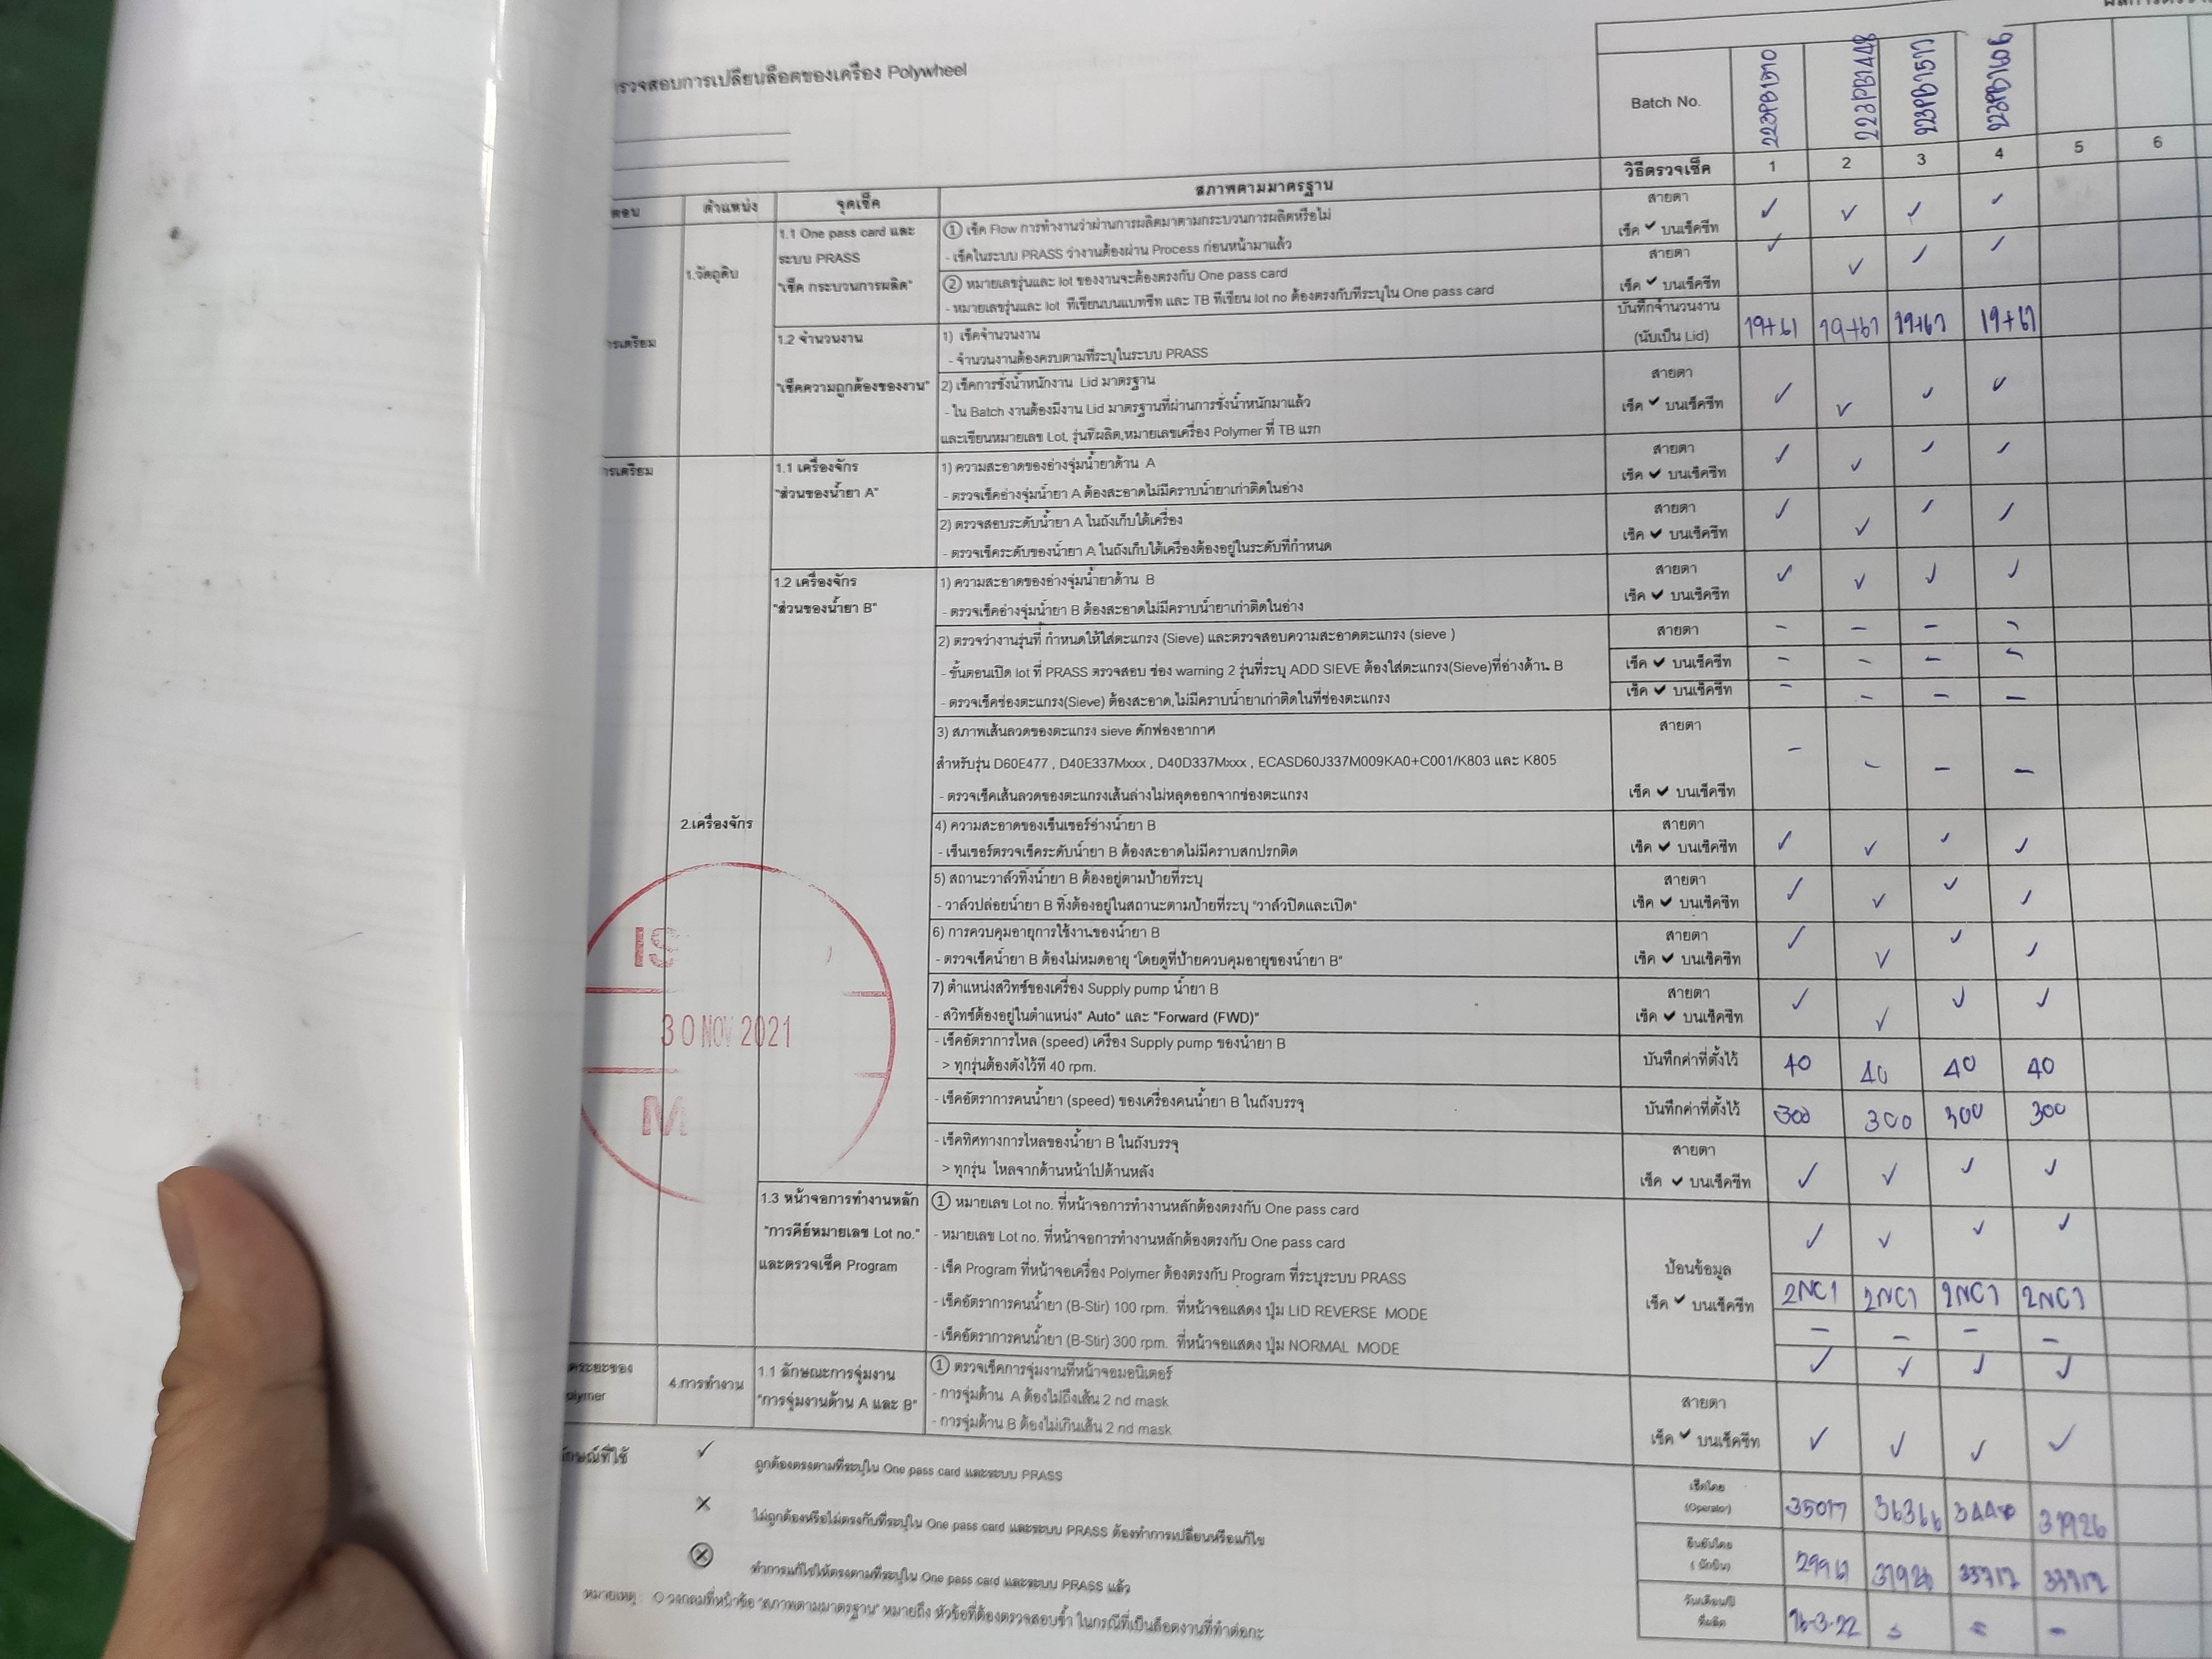 รวจสอบการเปลี่ยนล็อตของเครื่อง Polywheel
Batch No.
วิธีตรวจเช็ค 1 2 3 4 5 6
ตำแหน่ง จุดเช็ค สภาพตามมาตรฐาน
1.วัตถุดิบ
1.1 One pass card และ
ระบบ PRASS
"เช็ค กระบวนการผลิต"
① เช็ค Flow การทำงานว่าผ่านการผลิตมาตามกระบวนการผลิตหรือไม่
- เช็คในระบบ PRASS ว่างานต้องผ่าน Process ก่อนหน้ามาแล้ว
สายตา
เช็ค ✔ บนเช็คชีท
② หมายเลขรุ่นและ lot ของงานจะต้องตรงกับ One pass card
- หมายเลขรุ่นและ lot ที่เขียนบนแบทชีท และ TB ที่เขียน lot no ต้องตรงกับที่ระบุใน One pass card
สายตา
เช็ค ✔ บนเช็คชีท
1.2 จำนวนงาน
"เช็คความถูกต้องของงาน"
1) เช็คจำนวนงาน
- จำนวนงานต้องครบตามที่ระบุในระบบ PRASS
บันทึกจำนวนงาน
(นับเป็น Lid)
19+61 19+67 19+67 19+67
2) เช็คการชั่งน้ำหนักงาน Lid มาตรฐาน
- ใน Batch งานต้องมีงาน Lid มาตรฐานที่ผ่านการชั่งน้ำหนักมาแล้ว
และเขียนหมายเลข Lot, รุ่นที่ผลิต,หมายเลขเครื่อง Polymer ที่ TB แรก
สายตา
เช็ค ✔ บนเช็คชีท
2.เครื่องจักร
1.1 เครื่องจักร
"ส่วนของน้ำยา A"
1) ความสะอาดของอ่างจุ่มน้ำยาด้าน A
- ตรวจเช็คอ่างจุ่มน้ำยา A ต้องสะอาดไม่มีคราบน้ำยาเก่าติดในอ่าง
สายตา
เช็ค ✔ บนเช็คชีท
2) ตรวจสอบระดับน้ำยา A ในถังเก็บใต้เครื่อง
- ตรวจเช็คระดับของน้ำยา A ในถังเก็บใต้เครื่องต้องอยู่ในระดับที่กำหนด
สายตา
เช็ค ✔ บนเช็คชีท
1.2 เครื่องจักร
"ส่วนของน้ำยา B"
1) ความสะอาดของอ่างจุ่มน้ำยาด้าน B
- ตรวจเช็คอ่างจุ่มน้ำยา B ต้องสะอาดไม่มีคราบน้ำยาเก่าติดในอ่าง
สายตา
เช็ค ✔ บนเช็คชีท
2) ตรวจว่างานรุ่นที่ กำหนดให้ใส่ตะแกรง (Sieve) และตรวจสอบความสะอาดตะแกรง (sieve )
- ขั้นตอนเปิด lot ที่ PRASS ตรวจสอบ ช่อง warning 2 รุ่นที่ระบุ ADD SIEVE ต้องใส่ตะแกรง(Sieve)ที่อ่างด้าน B
- ตรวจเช็คช่องตะแกรง(Sieve) ต้องสะอาด,ไม่มีคราบน้ำยาเก่าติดในที่ช่องตะแกรง
สายตา
เช็ค ✔ บนเช็คชีท
เช็ค ✔ บนเช็คชีท
3) สภาพเส้นลวดของตะแกรง sieve ดักฟองอากาศ
สำหรับรุ่น D60E477 , D40E337Mxxx , D40D337Mxxx , ECASD60J337M009KA0+C001/K803 และ K805
- ตรวจเช็คเส้นลวดของตะแกรงเส้นล่างไม่หลุดออกจากช่องตะแกรง
สายตา
เช็ค ✔ บนเช็คชีท
4) ความสะอาดของเซ็นเซอร์อ่างน้ำยา B
- เซ็นเซอร์ตรวจเช็คระดับน้ำยา B ต้องสะอาดไม่มีคราบสกปรกติด
สายตา
เช็ค ✔ บนเช็คชีท
5) สถานะวาล์วทิ้งน้ำยา B ต้องอยู่ตามป้ายที่ระบุ
- วาล์วปล่อยน้ำยา B ทิ้งต้องอยู่ในสถานะตามป้ายที่ระบุ "วาล์วปิดและเปิด"
สายตา
เช็ค ✔ บนเช็คชีท
6) การควบคุมอายุการใช้งานของน้ำยา B
- ตรวจเช็คน้ำยา B ต้องไม่หมดอายุ "โดยดูที่ป้ายควบคุมอายุของน้ำยา B"
สายตา
เช็ค ✔ บนเช็คชีท
7) ตำแหน่งสวิทซ์ของเครื่อง Supply pump น้ำยา B
- สวิทซ์ต้องอยู่ในตำแหน่ง" Auto" และ "Forward (FWD)"
สายตา
เช็ค ✔ บนเช็คชีท
- เช็คอัตราการไหล (speed) เครื่อง Supply pump ของน้ำยา B
> ทุกรุ่นต้องตั้งไว้ที่ 40 rpm.
บันทึกค่าที่ตั้งไว้ 40 40 40 40
- เช็คอัตราการคนน้ำยา (speed) ของเครื่องคนน้ำยา B ในถังบรรจุ
บันทึกค่าที่ตั้งไว้ 300 300 300 300
- เช็คทิศทางการไหลของน้ำยา B ในถังบรรจุ
> ทุกรุ่น ไหลจากด้านหน้าไปด้านหลัง
สายตา
เช็ค ✔ บนเช็คชีท
1.3 หน้าจอการทำงานหลัก
"การคีย์หมายเลข Lot no."
และตรวจเช็ค Program
① หมายเลข Lot no. ที่หน้าจอการทำงานหลักต้องตรงกับ One pass card
- หมายเลข Lot no. ที่หน้าจอการทำงานหลักต้องตรงกับ One pass card
- เช็ค Program ที่หน้าจอเครื่อง Polymer ต้องตรงกับ Program ที่ระบุระบบ PRASS
- เช็คอัตราการคนน้ำยา (B-Stir) 100 rpm. ที่หน้าจอแสดง ปุ่ม LID REVERSE MODE
- เช็คอัตราการคนน้ำยา (B-Stir) 300 rpm. ที่หน้าจอแสดง ปุ่ม NORMAL MODE
ป้อนข้อมูล
เช็ค ✔ บนเช็คชีท
2NC1 2NC1 2NC1 2NC1
4.การทำงาน
1.1 ลักษณะการจุ่มงาน
"การจุ่มงานด้าน A และ B"
① ตรวจเช็คการจุ่มงานที่หน้าจอมอนิเตอร์
- การจุ่มด้าน A ต้องไม่ถึงเส้น 2 nd mask
- การจุ่มด้าน B ต้องไม่เกินเส้น 2 nd mask
สายตา
เช็ค ✔ บนเช็คชีท
30 NOV 2021
✓ ถูกต้องตรงตามที่ระบุใน One pass card และระบบ PRASS
✕ ไม่ถูกต้องหรือไม่ตรงกับที่ระบุใน One pass card และระบบ PRASS ต้องทำการเปลี่ยนหรือแก้ไข
ⓧ ทำการแก้ไขให้ตรงตามที่ระบุใน One pass card และระบบ PRASS แล้ว
หมายเหตุ : ○ วงกลมที่หน้าข้อ "สภาพตามมาตรฐาน" หมายถึง หัวข้อที่ต้องตรวจสอบซ้ำ ในกรณีที่เป็นล็อตงานที่ทำต่อกะ
เช็คโดย
(Operator)
35017 36366 31926
16-3-22